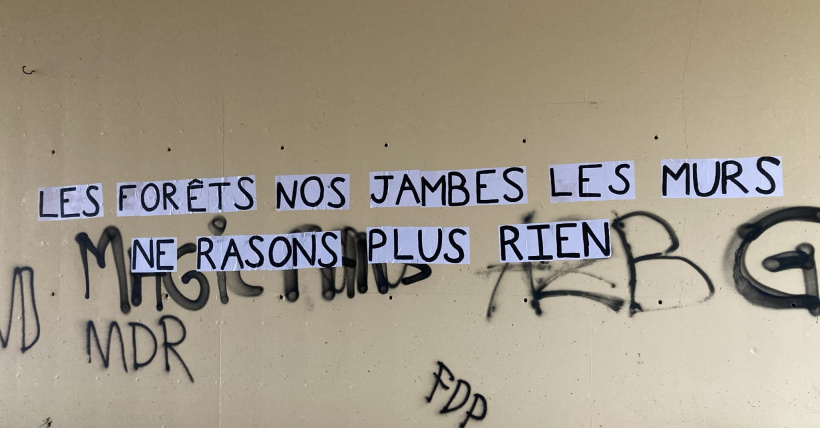 LES FORÊTS NOS JAMBES LES MURS
NE RASONS PLUS RIEN
MDR
FDP